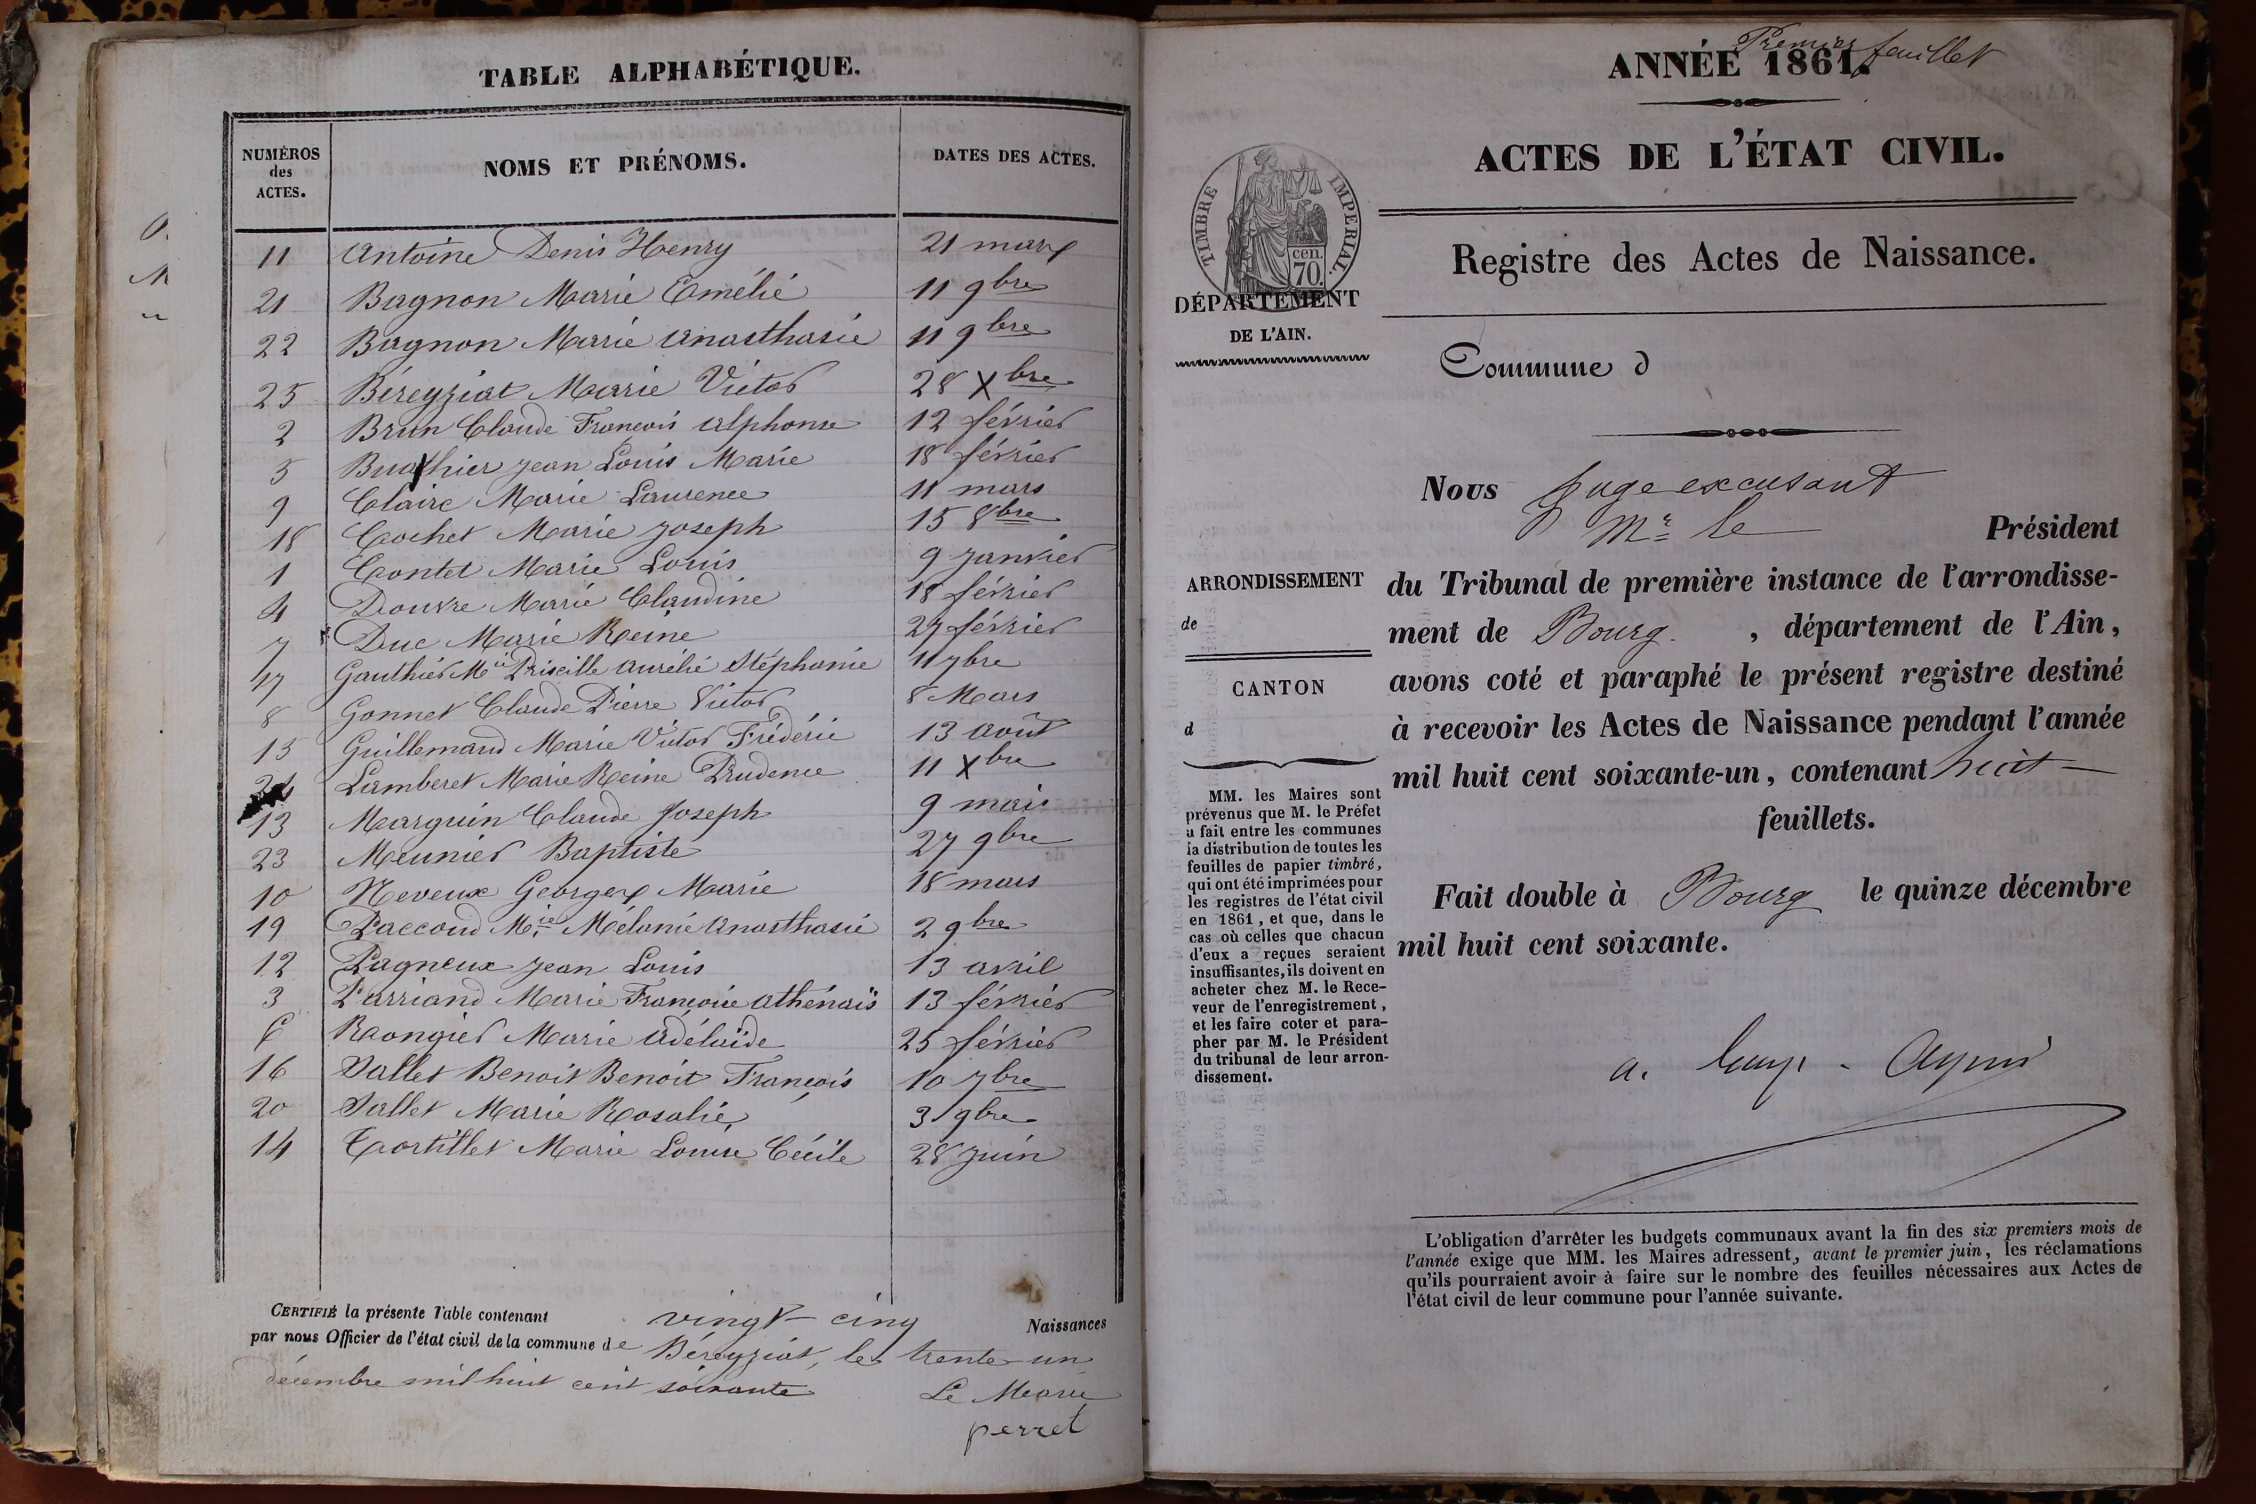 TABLE ALPHABÉTIQUE.
NUMÉROS des ACTES.
NOMS ET PRÉNOMS.
DATES DES ACTES.
11 Antoine Denis Henry 21 mars
21 Bagnon Marie Emélie 11 9bre
22 Bagnon Marie Anasthasie 11 9bre
25 Béreyziat Marie Victor 28 Xbre
2 Brun Claude François Alphonse 12 février
5 Buathier Jean Louis Marie 18 février
9 Claire Marie Laurence 11 mars
18 Cochet Marie Joseph 15 8bre
1 Contet Marie Louis 9 Janvier
4 Douvre Marie Claudine 18 février
7 Duc Marie Reine 27 février
17 Gauthier Mie Priscille Aurélie Stéphanie 11 7bre
8 Gonnet Claude Pierre Victor 8 Mars
15 Guillemaud Marie Victor Frédéric 13 Août
24 Lamberet Marie Reine Prudence 11 Xbre
13 Marguin Claude Joseph 9 mai
23 Meunier Baptiste 27 9bre
10 Neveux Georges Marie 18 mars
19 Paccoud Mie Mélanie Anasthasie 2 9bre
12 Pagneux Jean Louis 13 avril
3 Parriaud Marie Françoise Athénaïs 13 février
6 Rongier Marie Adélaïde 25 février
16 Sallet Benoit Benoit François 10 7bre
20 Sallet Marie Rosalie 3 9bre
14 Tortillet Marie Louise Cécile 28 Juin
CERTIFIÉ la présente Table contenant vingt-cinq Naissances
par nous Officier de l'état civil de la commune de Béreyziat, le trente-un
décembre mil huit cent soixante
Le Maire
perret
Premier feuillet
ANNÉE 1861.
ACTES DE L'ÉTAT CIVIL.
TIMBRE IMPERIAL.
cen. 70.
Registre des Actes de Naissance.
DÉPARTEMENT
DE L'AIN.
Commune d
Nous juge excusant
Mr le Président
ARRONDISSEMENT
de
CANTON
d
du Tribunal de première instance de l'arrondisse-
ment de Bourg , département de l'Ain,
avons coté et paraphé le présent registre destiné
à recevoir les Actes de Naissance pendant l'année
mil huit cent soixante-un, contenant huit
feuillets.
Fait double à Bourg le quinze décembre
mil huit cent soixante.
MM. les Maires sont
prévenus que M. le Préfet
a fait entre les communes
la distribution de toutes les
feuilles de papier timbré,
qui ont été imprimées pour
les registres de l'état civil
en 1861, et que, dans le
cas où celles que chacun
d'eux a reçues seraient
insuffisantes, ils doivent en
acheter chez M. le Rece-
veur de l'enregistrement,
et les faire coter et para-
pher par M. le Président
du tribunal de leur arron-
dissement.
L'obligation d'arrêter les budgets communaux avant la fin des six premiers mois de
l'année exige que MM. les Maires adressent, avant le premier juin, les réclamations
qu'ils pourraient avoir à faire sur le nombre des feuilles nécessaires aux Actes de
l'état civil de leur commune pour l'année suivante.